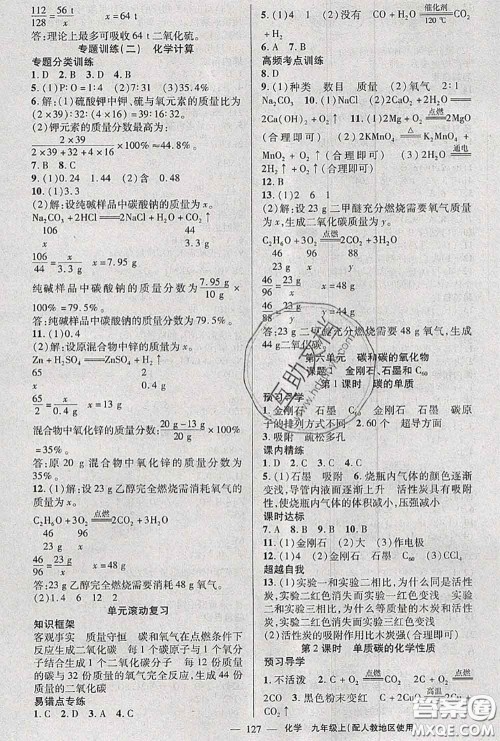 112/128=56 t/x x=64 t
答:理论上最多可吸收 64 t 二氧化硫。
专题训练(二) 化学计算
专题分类训练
1. D 2. B 3. B 4. D
5. (1)P:O=1:4 (2)7:2 (3)24.5
6. 解:(1)硫酸钾中钾、硫与氧元素的质量比为
(2×39):32:(16×4)=39:16:32
(2)钾元素的质量分数最高为:
2×39/(2×39+32+4×16)×100%≈44.8%。
7. B 8. C
9. (1)0.24 (2)1.45 (3)含 0.48
10. (1)3.3
(2)解:设纯碱样品中碳酸钠的质量为 x。
Na₂CO₃+2HCl══2NaCl+H₂O+CO₂↑
106 44
x 3.3 g
106/44=x/3.3 g x=7.95 g
纯碱样品中碳酸钠的质量分数为 7.95 g/10 g
×100%=79.5%。
答:纯碱样品中碳酸钠的质量分数为 79.5%。
11. (1)0.4
(2)解:设原混合物中锌的质量为 x。
Zn+H₂SO₄══ZnSO₄+H₂↑
65 2
x 0.4 g
65/2=x/0.4 g x=13 g
混合物中氧化锌的质量分数为 (20 g-13 g)/20 g×100%
=35%。
答:原 20 g 混合物中氧化锌的质量分数为
35%。
12. (1)解:设 23 g 乙醇完全燃烧需消耗氧气的
质量为 x。
C₂H₆O+3O₂ 点燃══ 2CO₂+3H₂O
46 96
23 g x
46/96=23 g/x x=48 g
答:23 g 乙醇完全燃烧需要消耗 48 g 氧气。
(2)1. 4 6 12
单元滚动复习
知识框架
客观事实 质量守恒 碳和氧气在点燃条件下
反应生成二氧化碳 每 1 个碳原子与 1 个氧分
子反应生成 1 个二氧化碳分子 每 12 份质量
的碳与 32 份质量的氧气完全反应生成 44 份质
量的二氧化碳
易错点专练
1. C 2. C 3. D 4. C
5. (1)没有 (2)没有 CO+H₂O 催化剂══120 ℃ CO₂+H₂
6. A 7. B
高频考点训练
8. D
9. (1)种类 数目 质量 (2)3O₂ (3)①1
Na₂CO₃ 10. (1)NaCl (2)CaO₂+2H₂O══
2Ca(OH)₂+O₂↑ 11. (1)2Mg+O₂ 点燃══ 2MgO
(合理即可) (2)2KMnO₄ △══ K₂MnO₄+
MnO₂+O₂↑(合理即可) (3)2H₂O 通电══
2H₂↑+O₂↑(合理即可)
12. B
13. (1)2 6 1
(2)解:设 23 g 二甲醚充分燃烧需要氧气质量
为 x,生成二氧化碳的质量为 y。
C₂H₆O+3O₂ 点燃══ 2CO₂+3H₂O
46 96 88
23 g x y
46/96=23 g/x x=48 g
46/88=23 g/y y=44 g
答:23 g 二甲醚充分燃烧需要 48 g 氧气,生成
44 g 二氧化碳。
第六单元 碳和碳的氧化物
课题1 金刚石、石墨和 C₆₀
第 1 课时 碳的单质
预习导学
1. 金刚石 石墨 金刚石 石墨 碳 碳原
子的排列方式不同 2. 60 个 超导方面
3. 吸附 疏松多孔
课内精练
1. D 2. C 3. A 4. C
5. (1)石墨 吸附 (2)金刚石 6. 烧瓶内气体的颜色逐渐
变浅,导管内液面上升 活性炭具有吸附性,使
烧瓶内的气体体积减小,压强减小
课时达标
7. A 8. B 9. D 10. D
11. (1)金刚石 (2)大 (3)作电极
12. (1)金刚石 石墨 C₆₀ (2)CO₂
超越自我
13. (1)实验一和实验二相比,为什么同是活性
炭,实验二红色消失而实验一红色变浅 实验二
和实验三相比,为什么同是红墨水和活性炭,实
验二红色消失而实验三红色变浅
(2)活性炭的吸附作用比木炭的吸附作用大
第 2 课时 单质碳的化学性质
预习导学
1. 小 C+O₂ 点燃══ CO₂ 2C+O₂ 点燃══ 2CO
2. 黑色粉末变红 C+2CuO 高温══ 2Cu+CO₂↑
127 化学 九年级上(配人教地区使用)